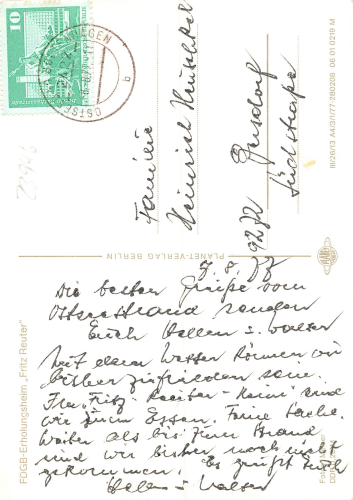 7.8.77
Die besten Grüße vom
Ostseestrand senden
Euch Hellen u. Walter
Mit dem Wetter können wir
bisher zufrieden sein.
Im Fritz-Reuter-Heim sind
wir zum Essen. Feine Sache.
Weiter als bis zum Strand
sind wir bisher noch nicht
gekommen. Es grüßt Euch
Hellen u. Walter
Familie
Heinrich
9272 Gersdorf
Südstraße
PLANET-VERLAG BERLIN
FDGB-Erholungsheim „Fritz Reuter"
III/26/13 A4/3/1/77 280208 06 01 0219 M
10
OSTSEEBAD